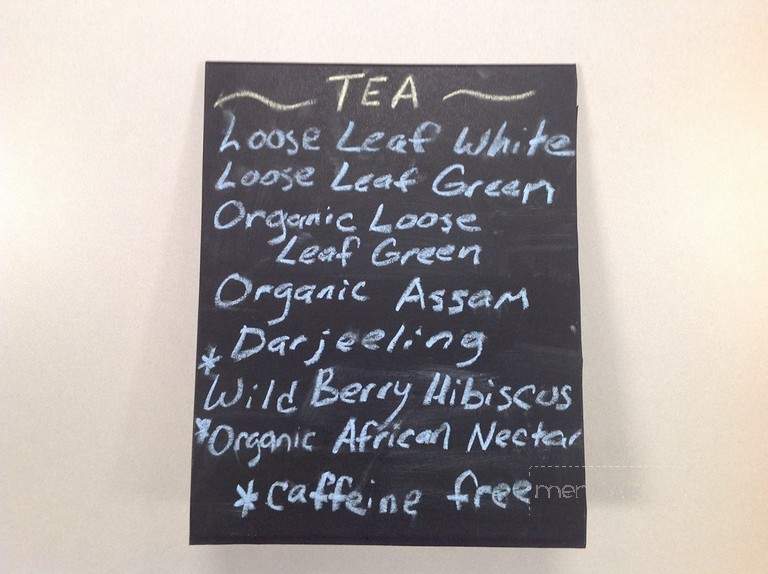 ~ TEA ~
Loose Leaf White
Loose Leaf Green
Organic Loose
Leaf Green
Organic Assam
Darjeeling
* Wild Berry Hibiscus
* Organic African Nectar
* Caffeine free